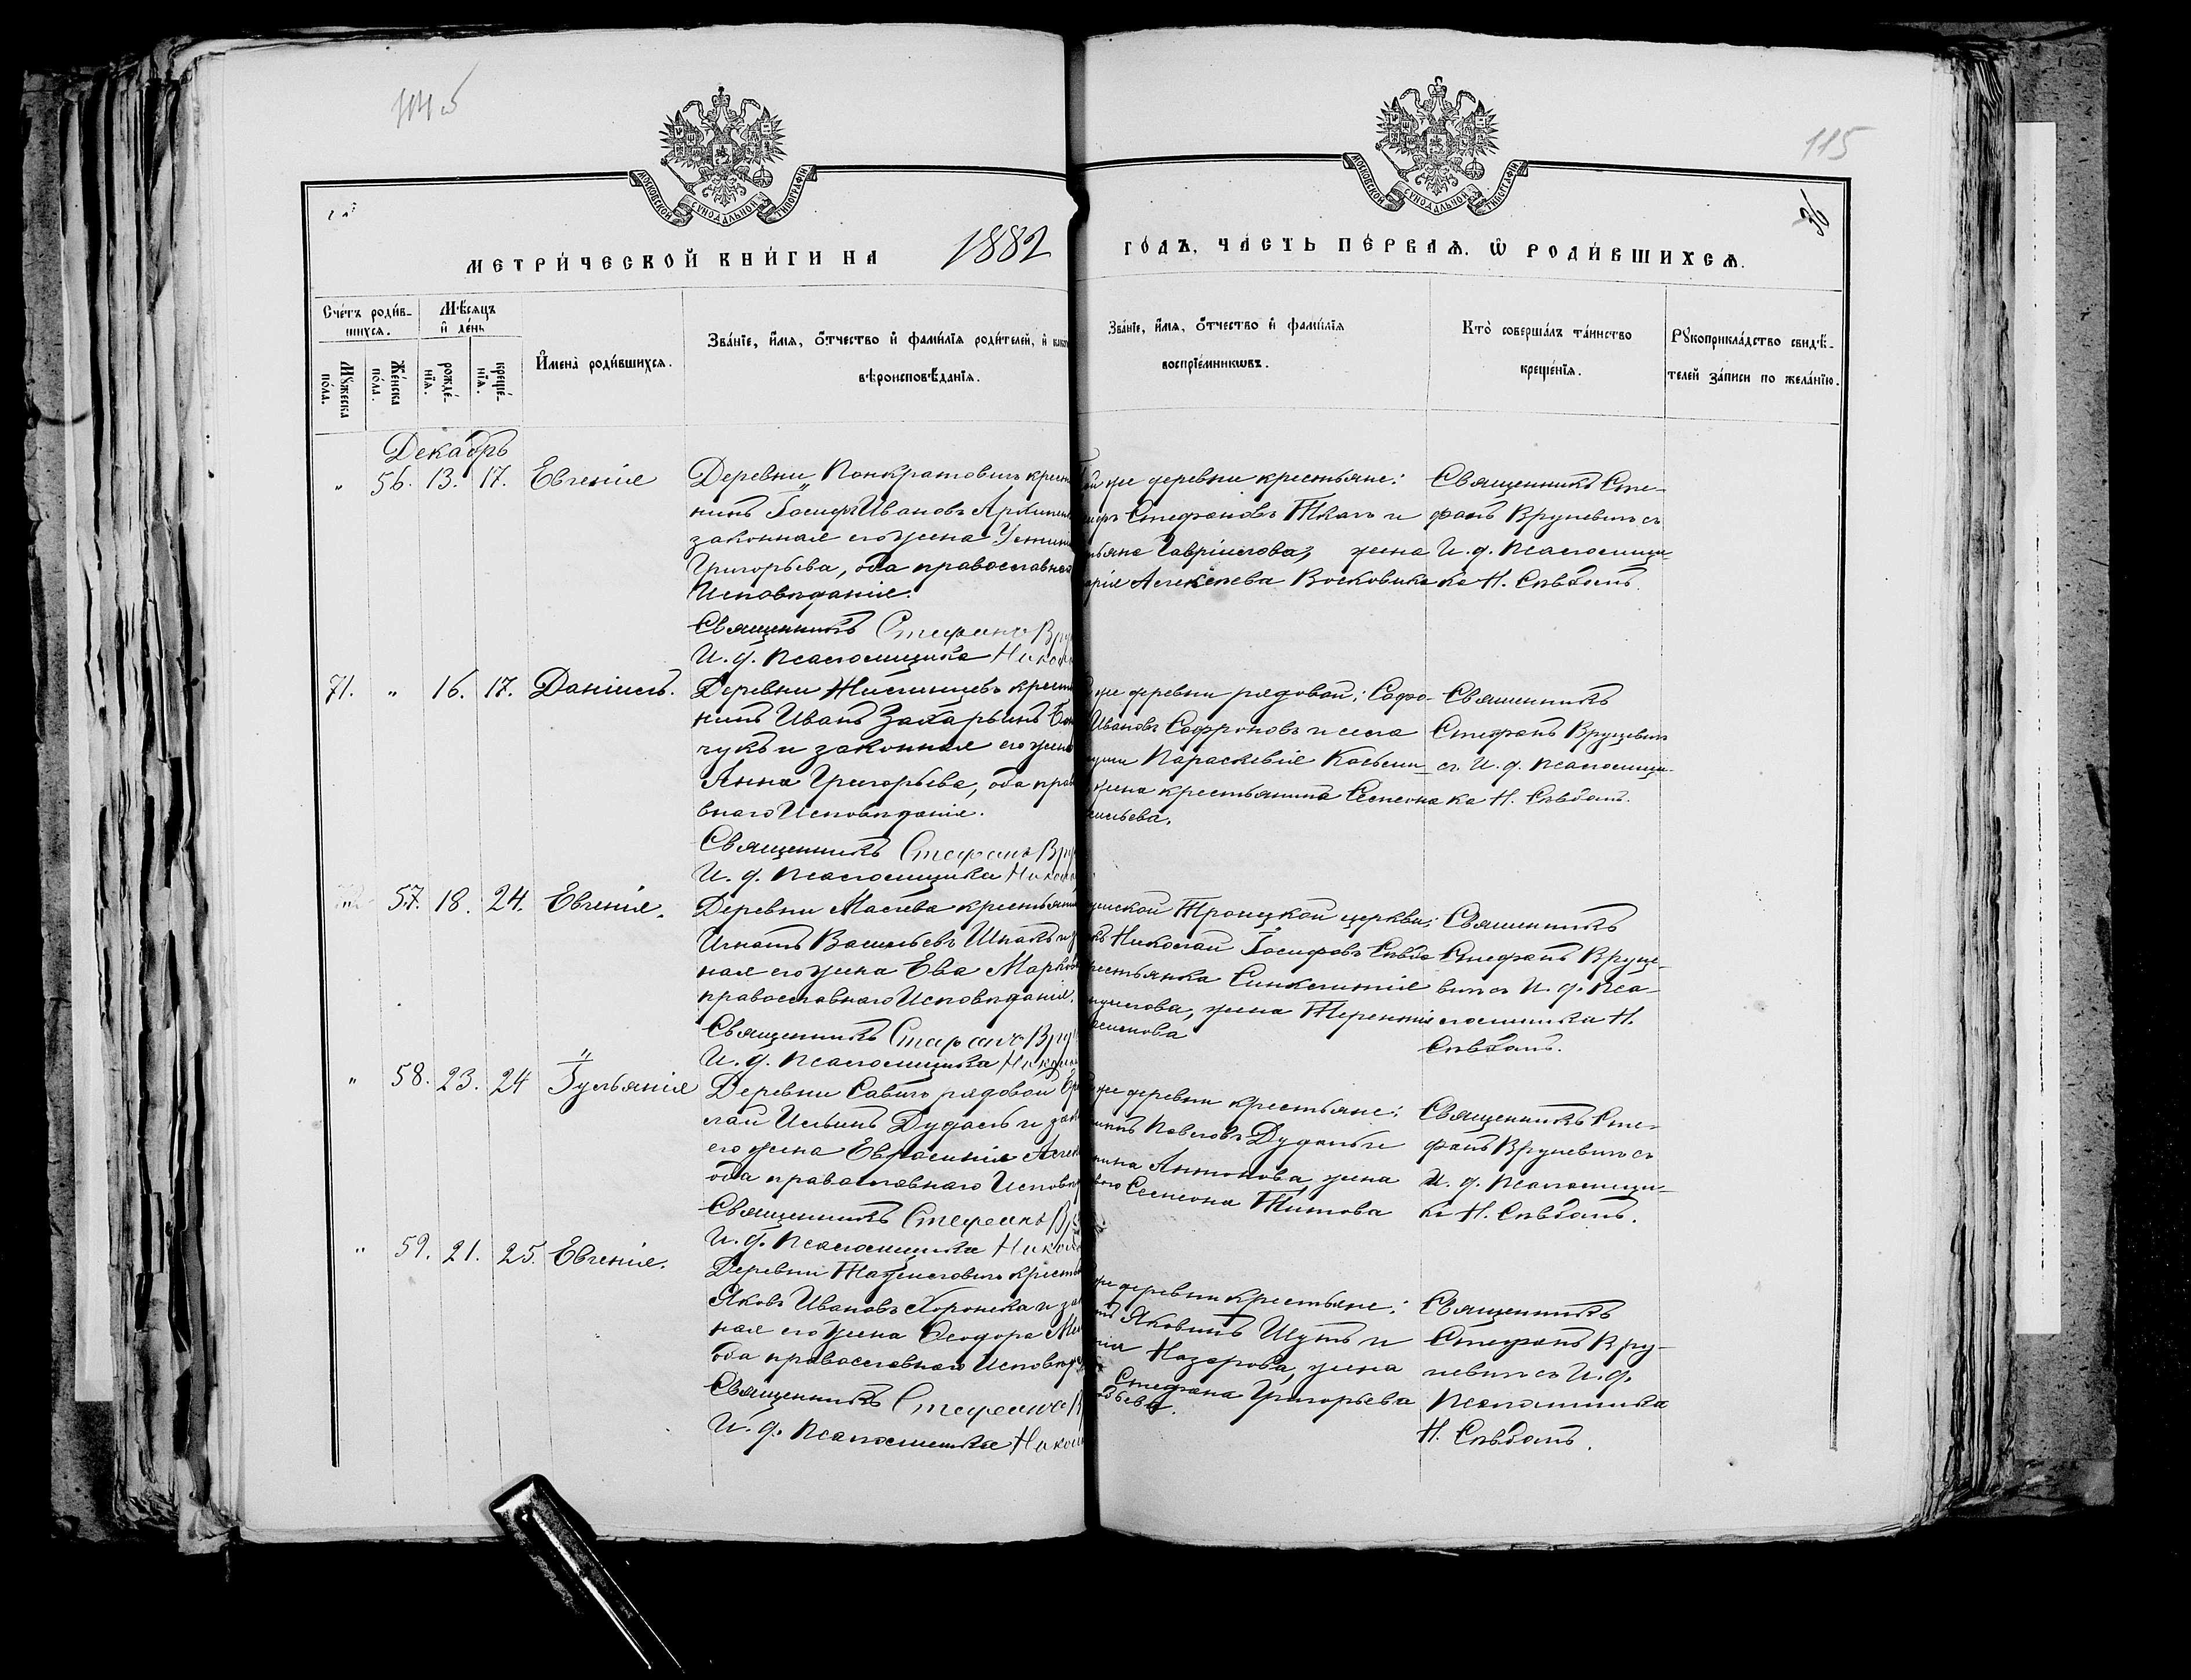 115
36
МОСКОВСКОЙ СУНОДАЛЬНОЙ ТИПОГРАФІИ
МОСКОВСКОЙ СУНОДАЛЬНОЙ ТИПОГРАФІИ
МЕТРИ́ЧЕСКОЙ КНИ́ГИ НА 1882
ГО́ДЪ, ЧА́СТЬ ПЕ́РВАѦ. Ѡ҆ РОДИ́ВШИХСѦ.
Сче́тъ роди́в-
шихсѧ.
Мꙋ́жеска по́ла.
Же́нска по́ла.
Мѣ́сѧцъ
и҆ де́нь
рожде́-
нїѧ.
креще́-
нїѧ.
И҆мена̀ роди́вшихсѧ.
Зва́нїе, и҆́мѧ, ѻ҆́тчество и҆ фами́лїѧ роди́телей, и҆
вѣроисповѣ́данїѧ.
Зва́нїе, и҆́мѧ, ѻ҆́тчество и҆ фами́лїѧ
воспрїе́мникѡвъ.
Кто̀ соверша́лъ та́инство
креще́нїѧ.
Рꙋкоприкла́дство свидѣ́-
телей за́писи по жела́нїю.
Декабрь
" 56. 13. 17. Евгенія
Деревни Понкратовичъ крест
нинъ Іосифъ Ивановъ
законная его жена
Григорьева, оба православна
Исповѣданія.
Священникъ Стефанъ Вру
И. д. Псаломщика Никол
же деревни крестьяне:
Стефановъ Ткачъ и
Гавріилова, жена
Алексѣева
Священникъ Сте-
фанъ Вруцевичъ съ
И. д. Псаломщи-
ка Н.
71. " 16. 17. Даніилъ.
Деревни крест
нинъ Иванъ Захарьинъ
чукъ и законная его жена
Анна Григорьева, оба прав
внаго Исповѣданія.
Священникъ Стефанъ Вру
И. д. Псаломщика Никол
же деревни рядовой: Софро-
Ивановъ Софроновъ и села
Параскевія Косьми-
жена крестьянина Семеона
сильева.
Священникъ
Стефанъ Вруцевичъ
съ И. д. Псаломщи-
ка Н.
" 57. 18. 24. Евгенія.
Деревни крестьянин
Игнатъ Васильевъ и
ная его жена Ева Марков
православнаго Исповѣданія.
Священникъ Стефанъ Вру
И. д. Псаломщика Никол
Троицкой церкви:
Николай Іосифовъ
рестьянка Синклитикія
жена Терентія
Священникъ
Стефанъ Вруце-
вичъ съ И. д. Пса-
ломщика Н.
" 58. 23. 24 Іульянія
Деревни рядовой
Ильинъ Дудалъ и зак
его жена Евфросинія Алек
оба православнаго Исповѣд
Священникъ Стефанъ Вру
И. д. Псаломщика Никол
же деревни крестьяне:
Павловъ Дудалъ и
Антонова, жена
Семеона Титова
Священникъ Сте-
фанъ Вруцевичъ съ
И. д. Псаломщи-
ка Н.
" 59. 21. 25. Евгенія.
Деревни крестья
Яковъ Ивановъ и зак
ная его жена Ѳеодора
оба православнаго Исповѣд
Священникъ Стефанъ В
И. д. Псаломщика Никол
же деревни крестьяне:
Яковинъ Шутъ и
Назарова, жена
Стефана Григорьева
Священникъ
Стефанъ Вру-
цевичъ съ И. д.
Псаломщика
Н.